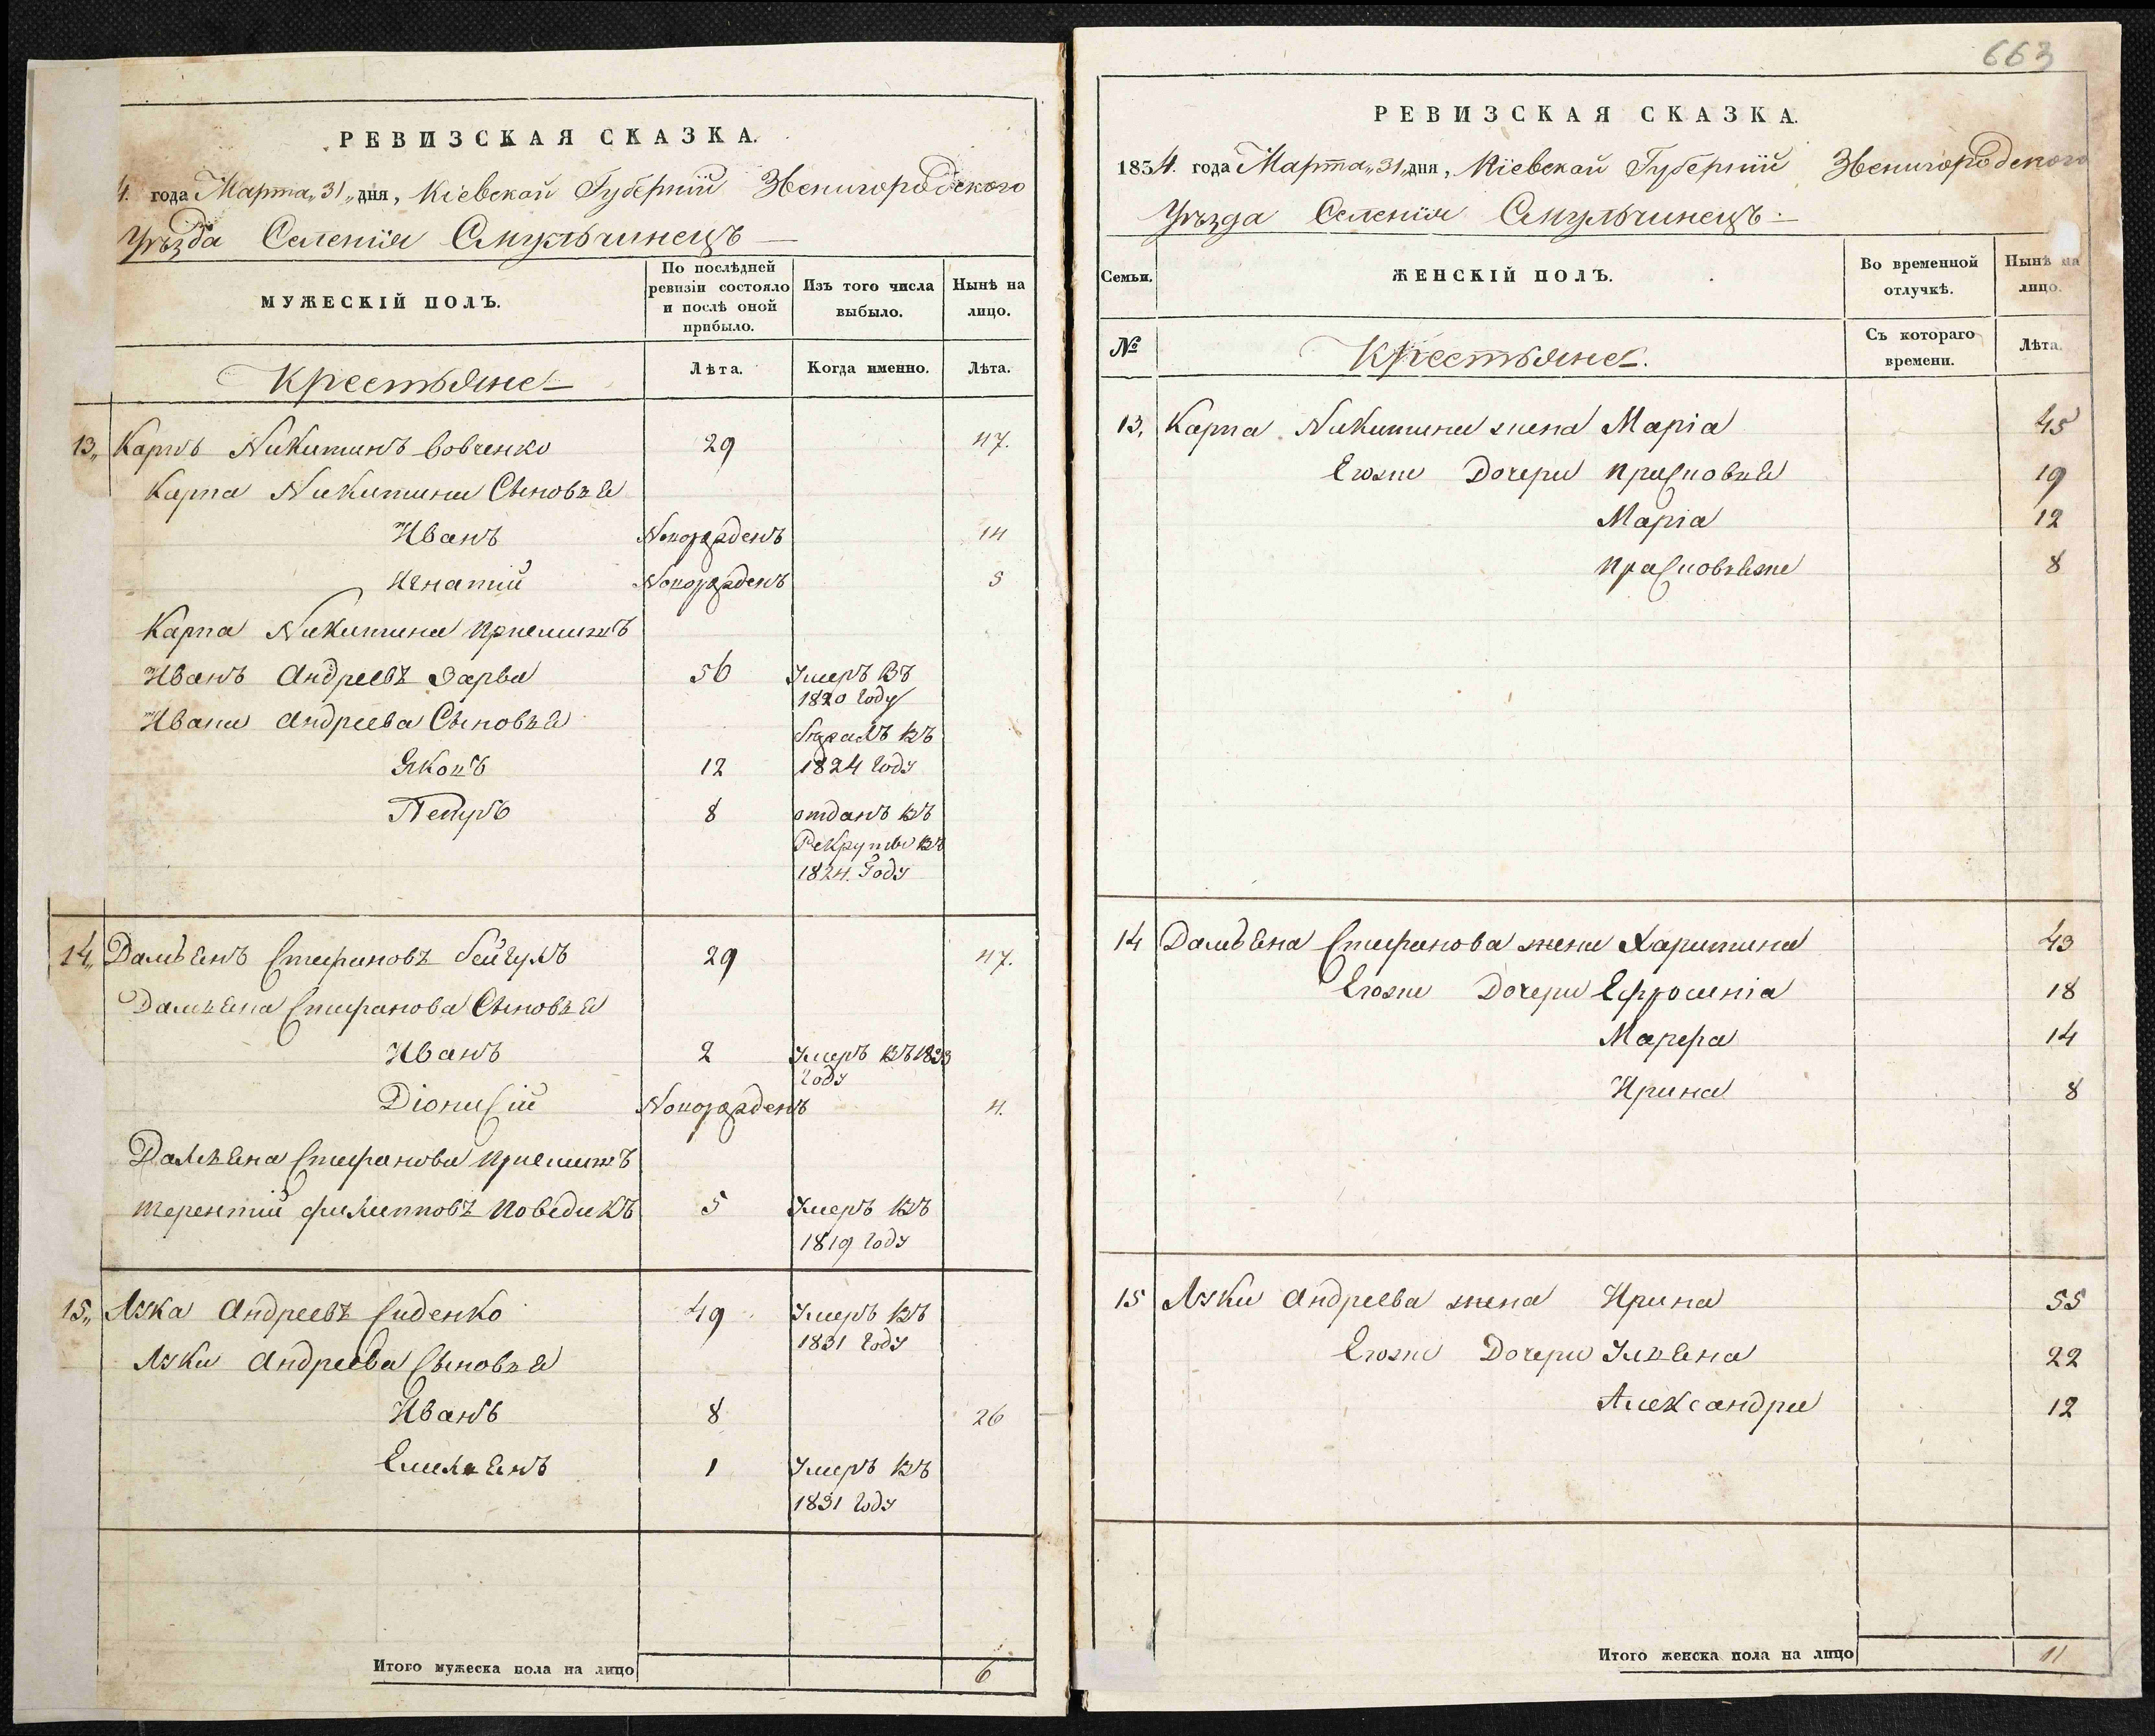 РЕВИЗСКАЯ СКАЗКА.
4. года Марта „31„ дня, Кіевской Губерніи Звенигородского
Уѣзда Селенія Смульчинецъ
МУЖЕСКІЙ ПОЛЪ.
По послѣдней ревизіи состояло и послѣ оной прибыло.
Изъ того числа выбыло.
Нынѣ на лицо.
Крестьяне
Лѣта.
Когда именно.
Лѣта.
13„ Карпъ Никитинъ Вовченко 29 47.
Карпа Никитина Сыновья
Иванъ Новорожденъ 14
Игнатій Новорожденъ 5
Карпа Никитина приемишъ
Иванъ Андреевъ Зарва 56 Умеръ въ
1820 году
Ивана Андреева Сыновья
Бежалъ въ
Яковъ 12 1824 году
Петръ 8 отданъ въ
Рекруты въ
1824. Году
14„ Дамьянъ Стефановъ 29 47.
Дамьяна Стефанова Сыновья
Иванъ 2 Умеръ въ 1833
году
Діонисій Новорожденъ 4.
Дамьяна Стефанова приемишъ
терентий филипповъ Поведикъ 5 Умеръ въ
1819 году
15„ Лука Андреевъ Сиденко 49 Умеръ въ
1831 году
Луки Андреева Сыновья
Иванъ 8 26
Емельянъ 1 Умеръ въ
1831 году
Итого мужеска пола на лицо 6
663
РЕВИЗСКАЯ СКАЗКА.
1834. года Марта „31„ дня, Кіевской Губерніи Звенигородского
Уѣзда Селенія Смульчинецъ
Семьи.
ЖЕНСКІЙ ПОЛЪ.
Во временной отлучкѣ.
Нынѣ на лицо.
№
Крестьяне.
Съ котораго времени.
Лѣта.
13, Карпа Никитина жена Маріа 45
Егоже Дочери Прасковья 19
Маріа 12
Прасковьяже 8
14 Дамьяна Стефанова жена Харитина 43
Егоже Дочери Ефросиніа 18
Марфа 14
Ирина 8
15 Луки Андреева жена Ирина 55
Егоже Дочери Ульяна 22
Александра 12
Итого женска пола на лицо 11